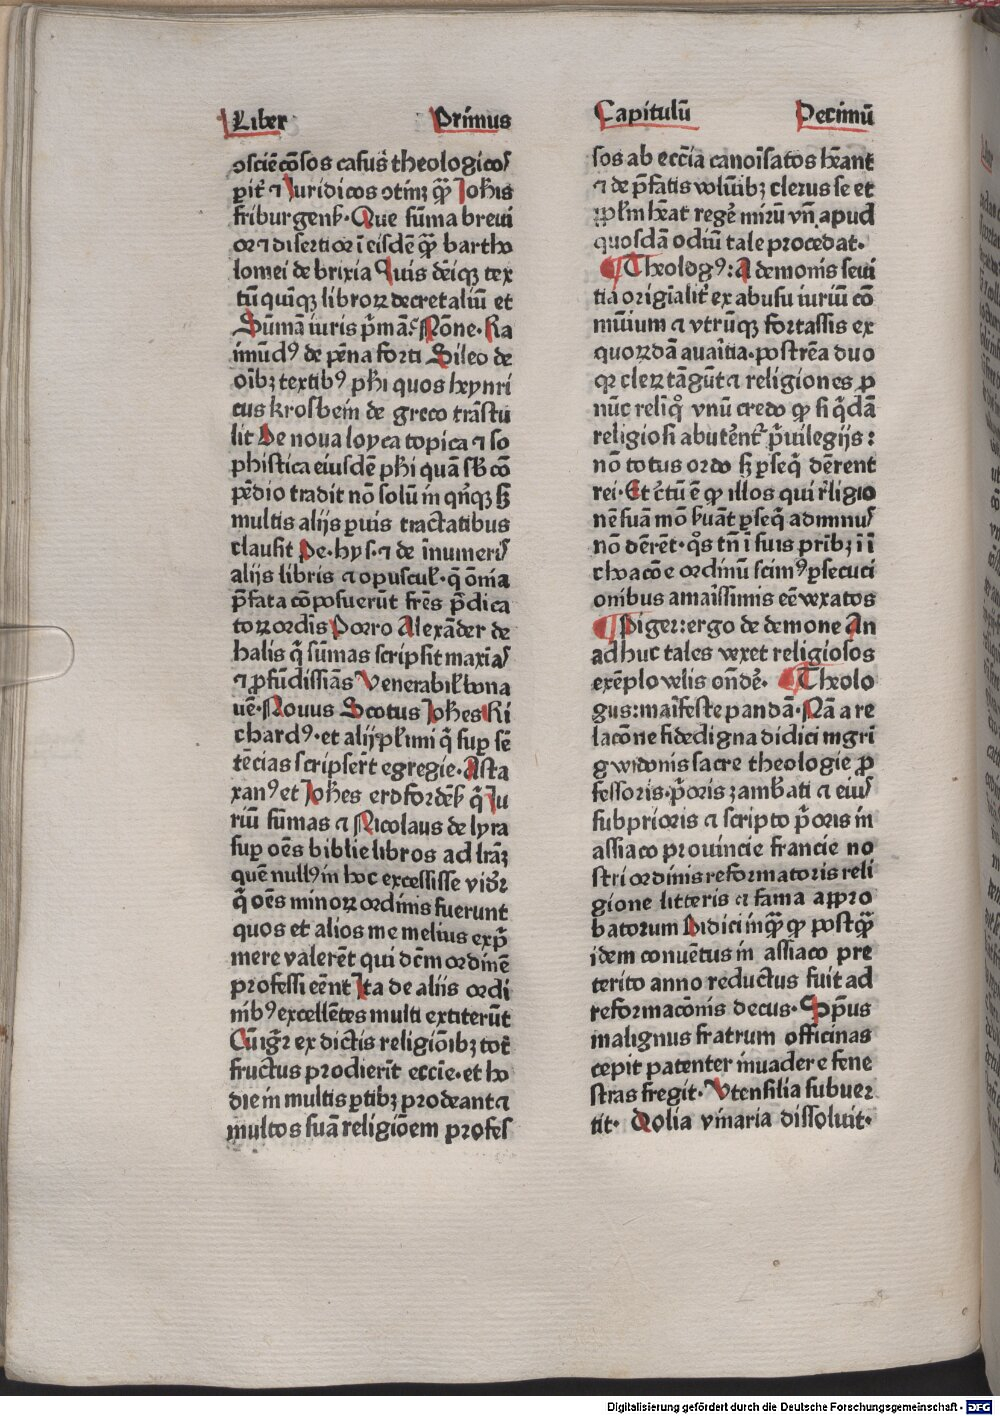 Liber Primus
ↄsciēcōsos casus̄ theologicoꝝ
ꝑit̄ ⁊ Iuridicos ↄtinꝫ qꝫ̄ Johīs
friburgenẜ. Que sūma breui
or ⁊ disertior ī eisdē qꝫ̄ bartho
lomei de brixia Quis dēiqꝫ tex
tū quīqꝫ libroꝝ decretaliū et
Sūmā iuris p̄māꝫ Nōne. Ra
imūdꝰ de pēna forti Sileo de
oībꝫ textibꝰ ph̄i quos heynri
cus krosbein de greco trāstu
lit De noua loyca topica ⁊ so
phistica eiusdē ph̄i quā sb̄ cō
pēdio tradit nō solū in qn̄qꝫ sꝫ
multis alijs ꝑuis tractatibus
clausit De. hys. ⁊ de īnumeriꝭ
alijs libris ⁊ opusculꝭ. q̄ ōmīa
p̄fata cōposuerūt frēs p̄dica
toꝝ ordīs Porro Alexāder de
halis q̄ sūmas scripsit maxīaꝭ
⁊ ꝓfūdissīas Venerabilꝭ bona
uē. Nouus Scotus Johēs Ri
chardꝰ. et alij pl̄imi q̄ suꝑ sē
tēcias scripserꝉ egregie. Asta
xanꝰ et Johēs erdfordēẜ q̄ Iu
riū sūmas ⁊ Nicolaus de lyra
suꝑ oēs biblie libros ad lrāꝫ
quē nullꝰ in hoc excessisse vidr̄
q̄ oēs minoꝝ ordinis fuerunt
quos et alios me melius exp̄
mere valerēt qui dcm̄ ordinē
professi eēnt Ita de aliis ordi
nibꝰ excellētes multi extiterūt
Cūigr̄ ex dictis religiōibꝫ tot
fructus prodierīt eccīe. et ho
die in multis ꝑtibꝫ prodeant ⁊
multos suā religiōem profes
Capitulū Decimū
sos ab eccīa canoīsatos hēant
⁊ de p̄fatis volūibꝫ clerus se et
ꝑpl̄m hēat regē mirū vn̄ apud
quosdā odiū tale procedat.
¶ Theologꝰ: A demonis seui
tia origīalit̄ ex abusu iuriū cō
mūium ⁊ vtrūqꝫ fortassis ex
quoꝝdā auaītia. postrēa duo
qꝛ cleꝝ tāgūt ⁊ religiones ꝓ
nūc relīqꝫ vnū credo ꝙ si q̄dā
religiosi abutēnt̄ p̄uilegijs:
nō totus ordo sꝫ ꝑseq̄ dērent
rei. Et c̄tū ē ꝙ illos qui r̄ligio
nē suā mō ẜuāt ꝑseq̄ admnuꝰ
nō dērēt. qͦs tn̄ ī suis prībꝫ ī ī
choacōe ordinū scimꝰ ꝑsecuci
onibus amaīssimis eē vexatos
¶ Piger: ergo de demone An
adhuc tales vexet religiosos
exēplo velis on̄dē. ¶ Theolo
gus: maīfeste pandā. Nā a re
lacōne fidedigna didici mgri
gwidonis sacre theologie ꝓ
fessoris. p̄oris zambati ⁊ eiuꝰ
subprioris ⁊ scripto p̄oris in
assiaco prouincie francie no
stri ordinis reformatoris reli
gione litteris ⁊ fama appro
batorum Didici inqꝫ̄ ꝙ postqꝫ̄
idem conuētus in assiaco pre
terito anno reductus fuit ad
reformacōnis decus. Sp̄us
malignus fratrum officinas
cepit patenter inuadere fene
stras fregit. Vtensilia subuer
tit. Dolia vinaria dissoluit.
Digitalisierung gefördert durch die Deutsche Forschungsgemeinschaft - DFG